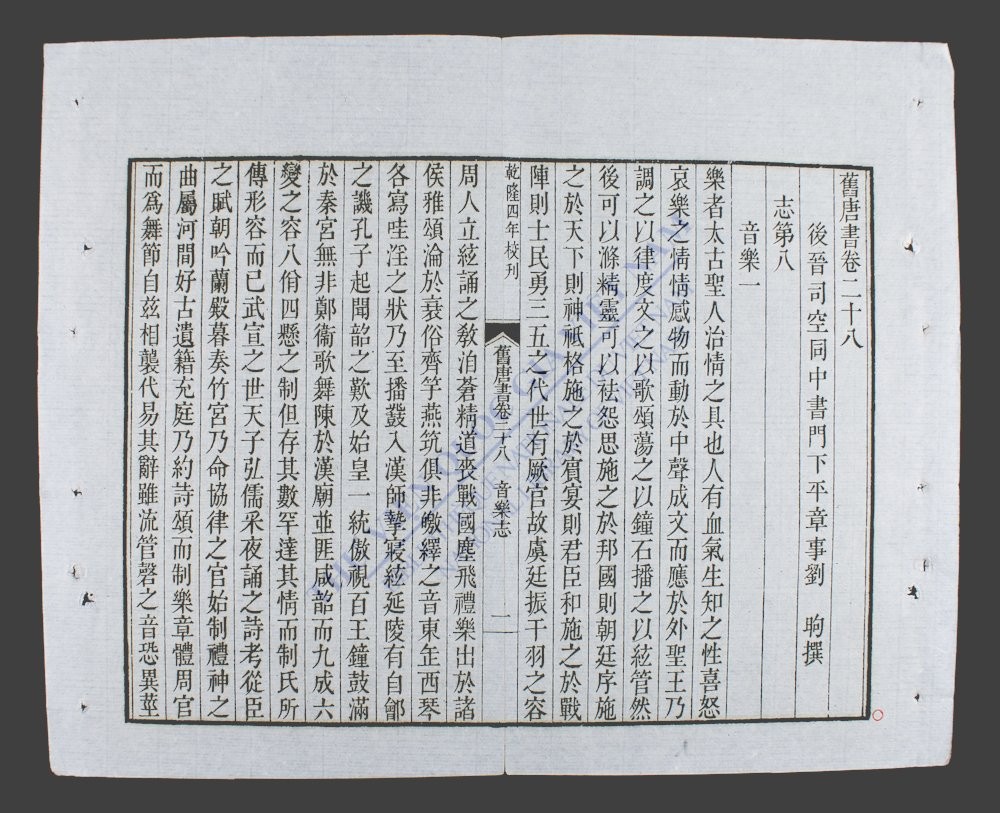 舊唐書卷二十八
後晉司空同中書門下平章事劉 昫撰
志第八
音樂一
樂者太古聖人治情之具也人有血氣生知之性喜怒
哀樂之情情感物而動於中聲成文而應於外聖王乃
調之以律度文之以歌頌蕩之以鐘石播之以絃管然
後可以滌精靈可以祛怨思施之於邦國則朝廷序施
之於天下則神祇格施之於賓宴則君臣和施之於戰
陣則士民勇三五之代世有厥官故虞廷振干羽之容
乾隆四年校刊
舊唐書卷二十八 音樂志 一
周人立絃誦之敎洎蒼精道喪戰國塵飛禮樂出於諸
侯雅頌淪於衰俗齊竽燕筑俱非皦繹之音東缶西琴
各寫哇淫之狀乃至播鼗入漢師摯寢絃延陵有自鄶
之譏孔子起聞韶之歎及始皇一統傲視百王鐘鼓滿
於秦宮無非鄭衞歌舞陳於漢廟並匪咸韶而九成六
變之容八佾四懸之制但存其數罕達其情而制氏所
傳形容而已武宣之世天子弘儒采夜誦之詩考從臣
之賦朝吟蘭殿暮奏竹宮乃命協律之官始制禮神之
曲屬河間好古遺籍充庭乃約詩頌而制樂章體周官
而爲舞節自茲相襲代易其辭雖流管磬之音恐異莖